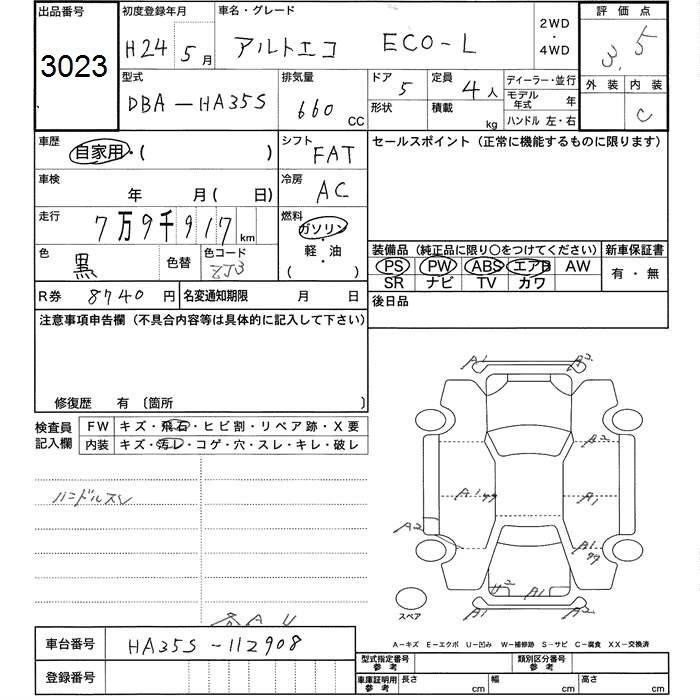 出品番号 初度登録年月 車名・グレード 2WD・4WD 評価点
3023 H24 5月 アルトエコ ECO-L 3.5
型式 排気量 ドア 定員 ディーラー・並行 外装 内装
DBA-HA35S 660 CC 5 4人 モデル年式 年 C
形状 積載 kg ハンドル 左・右
車歴 自家用・( ) シフト FAT セールスポイント(正常に機能するものに限ります)
車検 年 月( 日) 冷房 AC
走行 7万9千917km 燃料 ガソリン・軽・油( )
色 黒 色替 色コード ZJ3
装備品(純正品に限り○をつけてください) 新車保証書
PS PW ABS エアB AW 有・無
SR ナビ TV カワ
R券 8740円 名変通知期限 月 日 後日品
注意事項申告欄(不具合内容等は具体的に記入して下さい)
修復歴 有 〔箇所
検査員記入欄 FW キズ・飛石・ヒビ割・リペア跡・X要
内装 キズ・汚レ・コゲ・穴・スレ・キレ・破レ
ハンドルスレ
A1 A2
A2
A1 99 A1
A2
A1 99
U2 A1
A1 A2
スペア
A-キズ E-エクボ U-凹み W-補修跡 S-サビ C-腐食 XX-交換済
車台番号 HA35S-112908
登録番号
型式指定番号参考 類別区分番号参考
車庫証明用参考 長さ cm 幅 cm 高さ cm